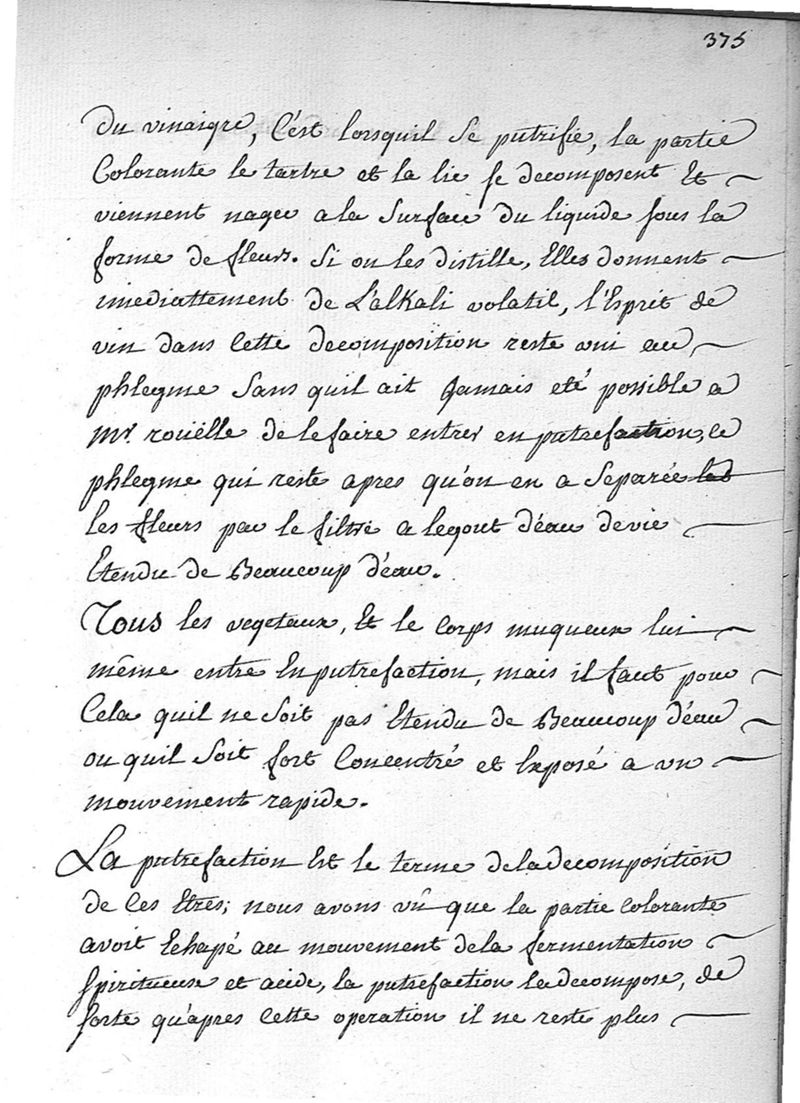 375
du vinaigre, C'est lorsquil Se putrifie, la partie
Colorante le tartre et la lie se decomposent Et
viennent nager a la Surface du liquide sous la
forme de fleurs. Si on les distille, Elles donnent
imediattement de L'alkali volatil, l'Esprit de
vin dans Cette decomposition reste uni au
phlegme Sans quil ait Jamais eté possible a
Mr. roüelle de le faire entrer en putrefaction, ce
phlegme qui reste apres qu'on en a Separée
les fleurs par le filtre a legout d'eau de vie
Etendu de Beaucoup d'éau.
Tous les vegetaux, Et le Corps muqueux lui
même entre En putrefaction, mais il faut pour
Cela quil ne Soit pas Etendu de Beaucoup d'éau
ou quil Soit fort Concentré et Exposé a un
mouvement rapide.
La putrefaction Est le terme de la decomposition
de Ces Etres; nous avons vû que la partie Colorante
avoit Echapé au mouvement de la fermentation
Spiritueuse et acide, la putrefaction la decompose, de
sorte qu'apres Cette operation il ne reste plus